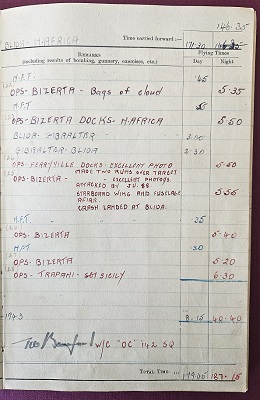 146.35
BLIDA - N. AFRICA
Time carried forward :—
171·30 146·35
REMARKS
(including results of bombing, gunnery, exercises, etc.)
Flying Times
Day Night
N.F.T. 45
OPS - BIZERTA - Bags of cloud 5·35
N.F.T
OPS - BIZERTA DOCKS - N. AFRICA 5·50
BLIDA - GIBRALTAR
GIBRALTAR - BLIDA 2·30
OPS - FERRYVILLE DOCKS - EXCELLENT PHOTO 5·50
MADE TWO RUNS OVER TARGET
OPS - BIZERTA - - EXCELLENT PHOTO/S.
ATTACKED BY JU. 88
STARBOARD WING AND FUSELAGE
AFIRE.
CRASH LANDED AT BLIDA.
N.F.T. 35
OPS - BIZERTA 5·40
N.F.T 30
OPS - BIZERTA 5·20
OPS - TRAPANI - SICILY 6·30
1943
8·15 40·40
W/C "OC" 142 SQ
TOTAL TIME ... 187·15